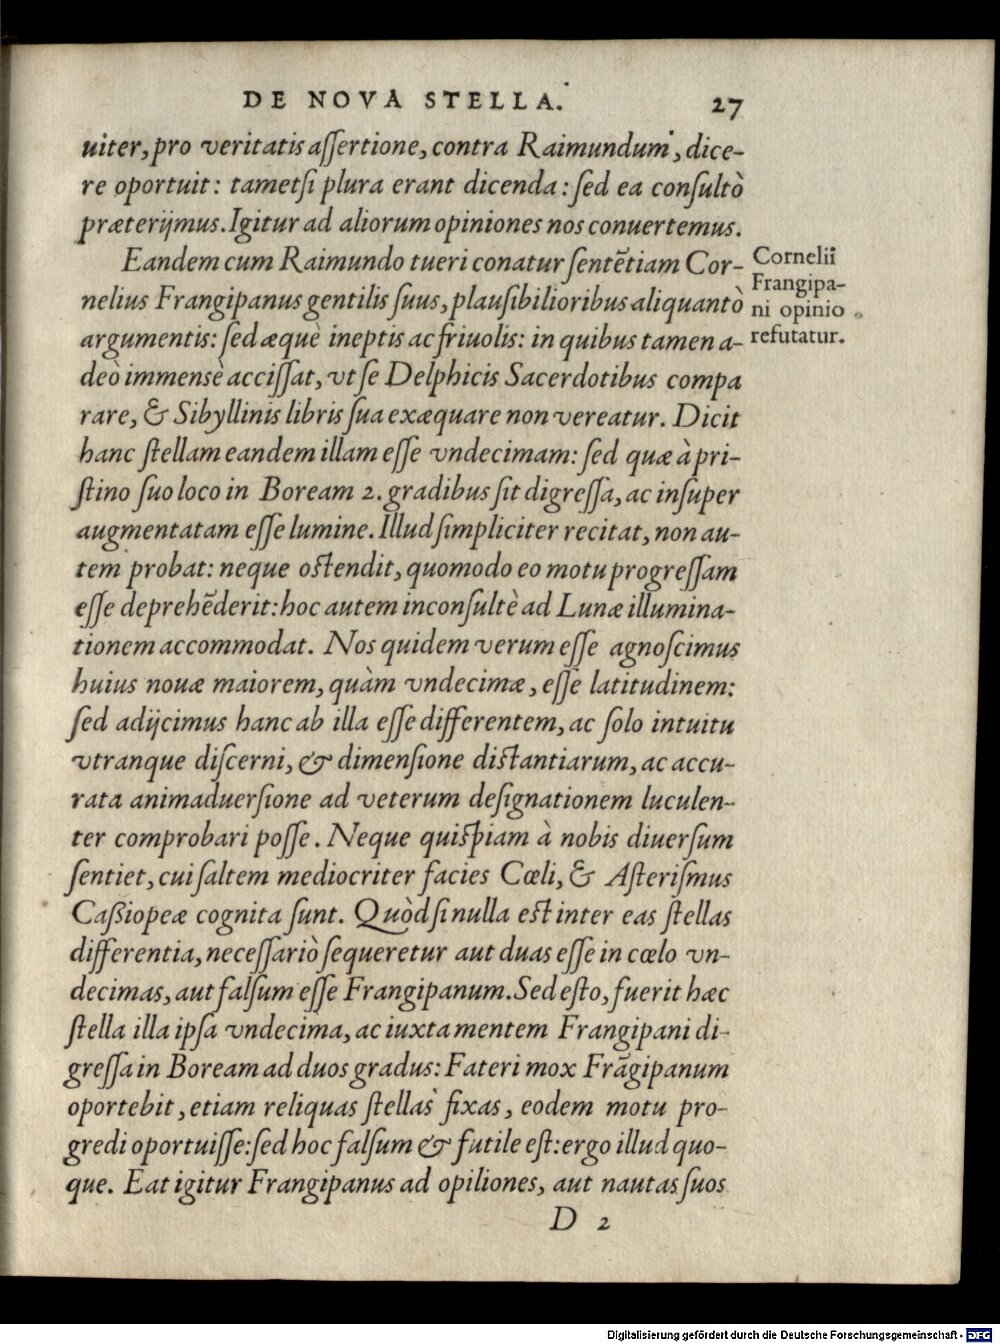 DE NOVA STELLA. 27
uiter, pro veritatis aſſertione, contra Raimundum, dice-
re oportuit: tametſi plura erant dicenda: ſed ea conſultò
præterijmus. Igitur ad aliorum opiniones nos conuertemus.
Eandem cum Raimundo tueri conatur ſentẽtiam Cor-
nelius Frangipanus gentilis ſuus, plauſibilioribus aliquantò
argumentis: ſed æquè ineptis ac friuolis: in quibus tamen a-
deò immensè acciſſat, vt ſe Delphicis Sacerdotibus compa
rare, & Sibyllinis libris ſua exæquare non vereatur. Dicit
hanc ſtellam eandem illam eſſe vndecimam: ſed quæ à pri-
ſtino ſuo loco in Boream 2. gradibus ſit digreſſa, ac inſuper
augmentatam eſſe lumine. Illud ſimpliciter recitat, non au-
tem probat: neque oſtendit, quomodo eo motu progreſſam
eſſe deprehẽderit: hoc autem inconſultè ad Lunæ illumina-
tionem accommodat. Nos quidem verum eſſe agnoſcimus
huius nouæ maiorem, quàm vndecimæ, eſſe latitudinem:
ſed adijcimus hanc ab illa eſſe differentem, ac ſolo intuitu
vtranque diſcerni, & dimenſione diſtantiarum, ac accu-
rata animaduerſione ad veterum deſignationem luculen-
ter comprobari poſſe. Neque quiſpiam à nobis diuerſum
ſentiet, cui ſaltem mediocriter facies Cœli, & Aſteriſmus
Caßiopeæ cognita ſunt. Quòd ſi nulla eſt inter eas ſtellas
differentia, neceſſariò ſequeretur aut duas eſſe in cœlo vn-
decimas, aut falſum eſſe Frangipanum. Sed eſto, fuerit hæc
ſtella illa ipſa vndecima, ac iuxta mentem Frangipani di-
greſſa in Boream ad duos gradus: Fateri mox Frãgipanum
oportebit, etiam reliquas ſtellas fixas, eodem motu pro-
gredi oportuiſſe: ſed hoc falſum & futile eſt: ergo illud quo-
que. Eat igitur Frangipanus ad opiliones, aut nautas ſuos
D 2
Cornelii
Frangipa-
ni opinio
refutatur.
Digitalisierung gefördert durch die Deutsche Forschungsgemeinschaft - DFG